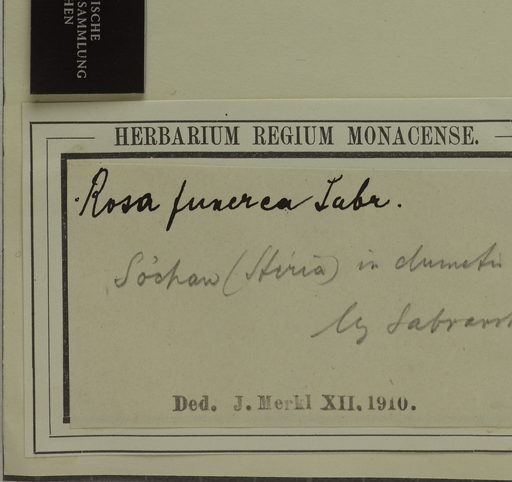 ISCHE
SAMMLUNG
HEN
HERBARIUM REGIUM MONACENSE.
Rosa funerea Sabr.
Söchau (Stiria) in dumetis
lg Sabransk
Ded. J. Merkl XII. 1910.